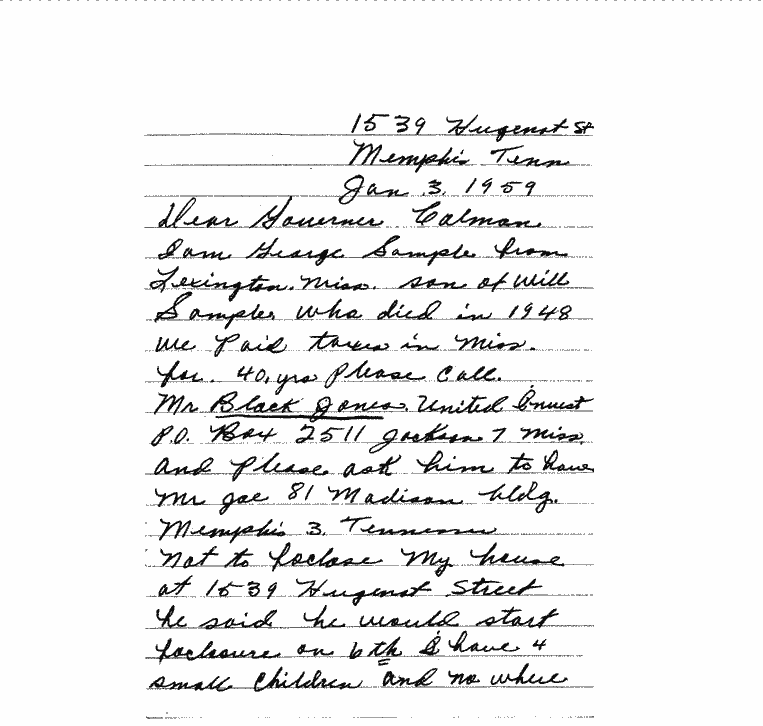 1539 Hugenot St
Memphis Tenn
Jan 3, 1959
Dear Governer Colman
I am George Sample from
Lexington. Miss. son of Will
Sample, who died in 1948
we Paid taxes in Miss.
for. 40, yrs Please Call.
Mr Black Jones. United Invest
P.O. Box 2511 Jackson 7 Miss.
and Please ask him to have
Mr Joe 81 Madison bldg.
Memphis 3. Tennessee
Not to foclose My house
at 1539 Hugenot Street
he said he would start
foclosure on 6th I have 4
small Children and no where